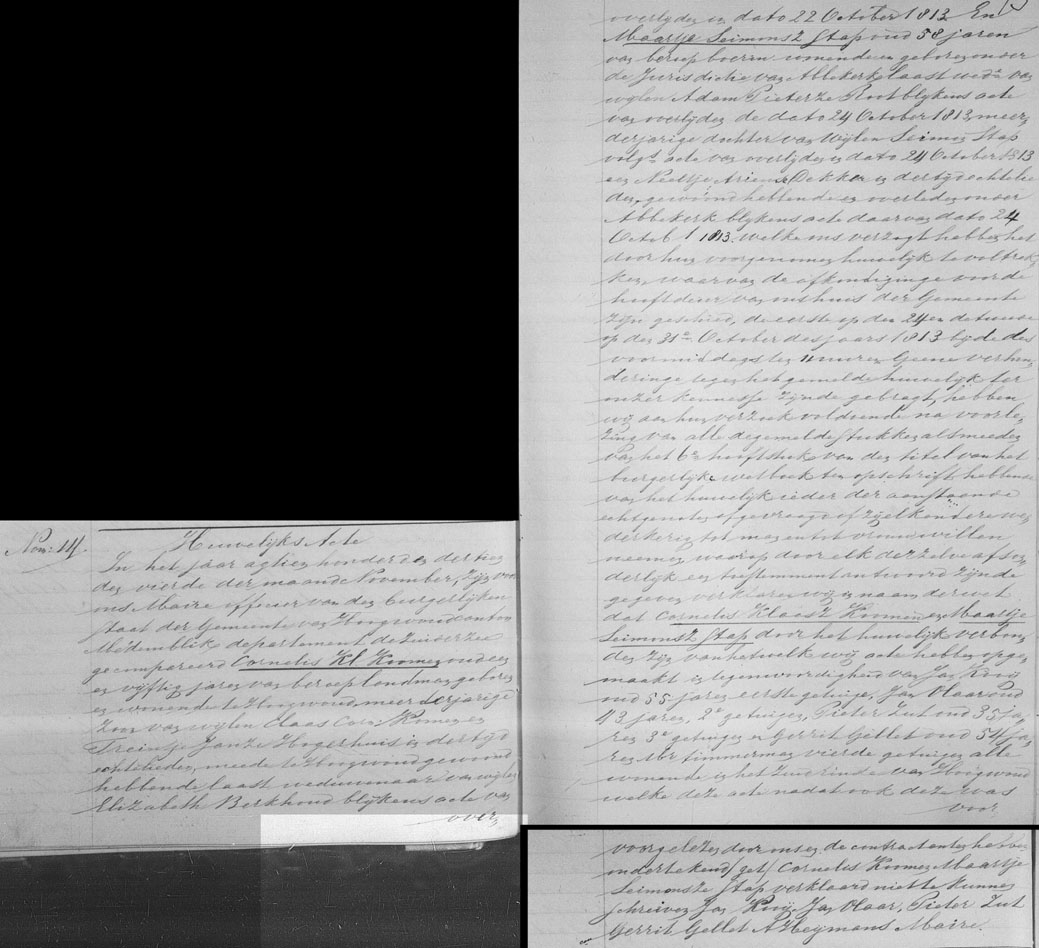 Nom: 14. Huwelijks Acte
In het jaar agtien honderd en dertien
den vierde der maand November, zijn voor
ons Maire officier van den burgerlijken
staat der Gemeente van Hoogwoud canton
Medemblik departement de Zuiderzee
gecompareerd Cornelis Kl Koomen oud een
en vijftig jaren van beroep landman geboren
en wonende te Hoogwoud meerderjarige
zoon van wijlen Claas Corn. Komen en
Treintje Janze Hogerhuis in der tijd
echtelieden, meede te Hoogwoud gewoond
hebbende laast weduwnaar van wijlen
Elizabeth Berkhoud blijkens acte van
over
overlijden in dato 22 October 1813 En
Maartje Seimonsz Stap oud 58 jaren
van beroep boerin wonende en geboren onder
de Jurisdictie van Abbekerk laast wede van
wijlen Adam Pieterze Root blijkens acte
van overlijden de dato 24 October 1813, meer
derjarige dochter van Wijlen Seimon Stap
volgs acte van overlijden in dato 24 October 1813
en Neeltje Ariens Dekker in der tijd echtelie
den, gewoond hebbende en overleden onder
Abbekerk blijkens acte daarvan dato 24
Octob 1813. welke ons verzogt hebben het
door hun voorgenomen huwelijk te voltrek
ken, waarvan de afkondiginge voor de
hoofddeur van ons huis der Gemeente
zijn geschied, de eerste op den 24 en de tweede
op den 31e October des jaars 1813 bijde des
voormiddags ten 11 uuren Geene verhin
deringe tegen het gemelde huwelijk ter
onzer kennesse zijnde gebragt, hebben
wij aan hun verzoek voldoende na voorle
zing van alle de gemelde stukken alsmeede
van het 6e hooftstuk van den titel van het
burgerlijk wetboek ten opschrift hebbende
van het huwelijk ieder der aanstaande
echtgenoten afgevraagd of zij elkandere we
derkerig tot man en tot vrouw willen
neemen, waarop door elk derzelve afzon
derlijk een toestemment antwoord zijnde
gegeven verklaren wij in naam der wet
dat Cornelis Klaasz Koomen en Maartje
Seimonsz Stap door het huwelijk verbon
den zijn van hetwelk wij acte hebben opge
maakt in tegenwoordigheid van Jan Kooij
oud 55 jaren eerste getuige, Jan Vlaar oud
43 jaren, 2e getuigen, Pieter Zut oud 35 ja
ren 3e getuigen en Gerrit Gellet oud 54 ja
ren timmerman vierde getuigen alle
wonende in het Zuideinde van Hoogwoud
welke deze acte nadat ook deze was
voor
voorgelezen door ons en de contractanten hebben
ondertekend/get/ Cornelis Koomen Maartje
Seimonsze Stap verklaard niet te kunnen
schreiven Jan Kooij, Jan Vlaar, Pieter Zut
Gerrit Gellet A Heijmans Maire.